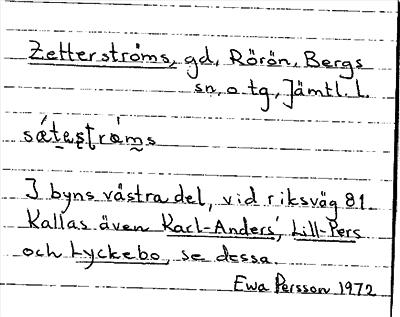 Zetterströms, gd, Rörön, Bergs
sn, o. tg, Jämtl. l.
sǽtestrǿms
I byns västra del, vid riksväg 81.
Kallas även Karl-Anders', Lill-Pers
och Lyckebo, se dessa.
Ewa Persson 1972